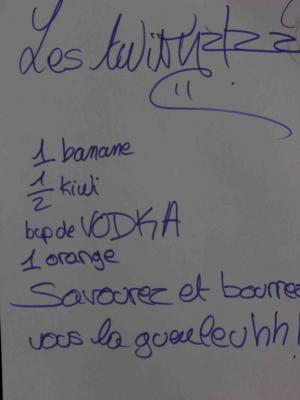 Les
1 banane
1/2 kiwi
bcp de VODKA
1 orange
Savourez et bourrez
vous la gueuleuhh!